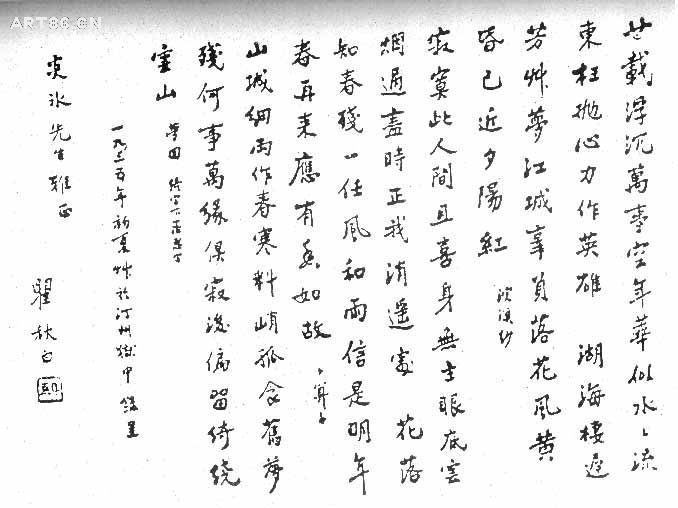 ART86.CN
廿載浮沉萬事空年華似水ミ流
東枉抛心力作英雄 湖海棲遲
芳艸夢江城辜負落花風黄
昏已近夕陽紅 浣溪紗
寂寞此人間且喜身無主眼底雲
烟過盡時正我逍遥處 花落
知春殘一任風和雨信是明年
春再来應有香如故 卜算子
山城細雨作春寒料峭孤衾舊夢
殘何事萬緣俱寂後偏留綺繞
雲山 夢回
一九三五年初夏 於汀州獄中 錄呈
炎冰先生雅正
瞿秋白